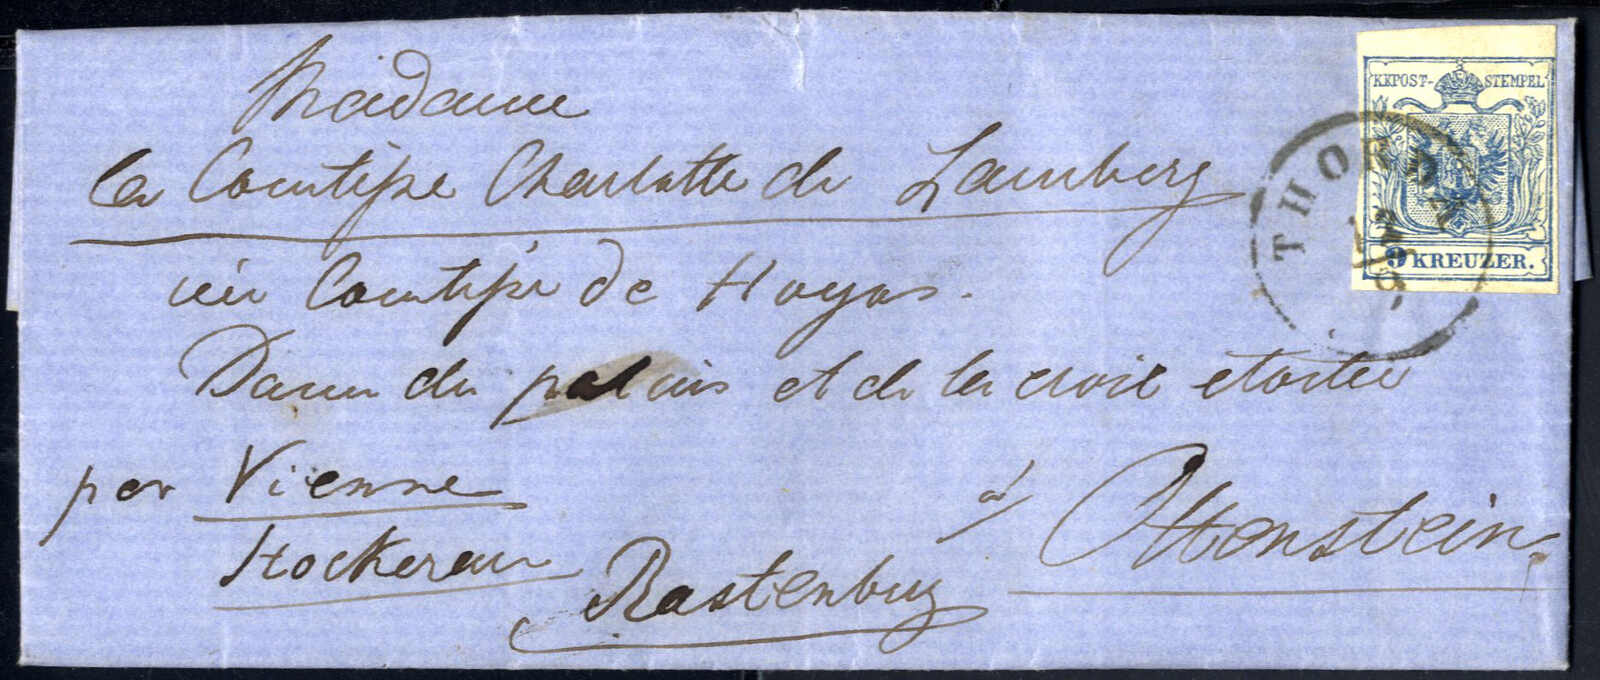 Madame
la Comtesse Charlotte de Lamberg
née Comtesse de Hoyos.
Dame du palais et de la croix etoilée
per Vienne
Stockerau
Rastenburg
à Ottenstein
KKPOST-STEMPEL
9 KREUZER.
THORDA